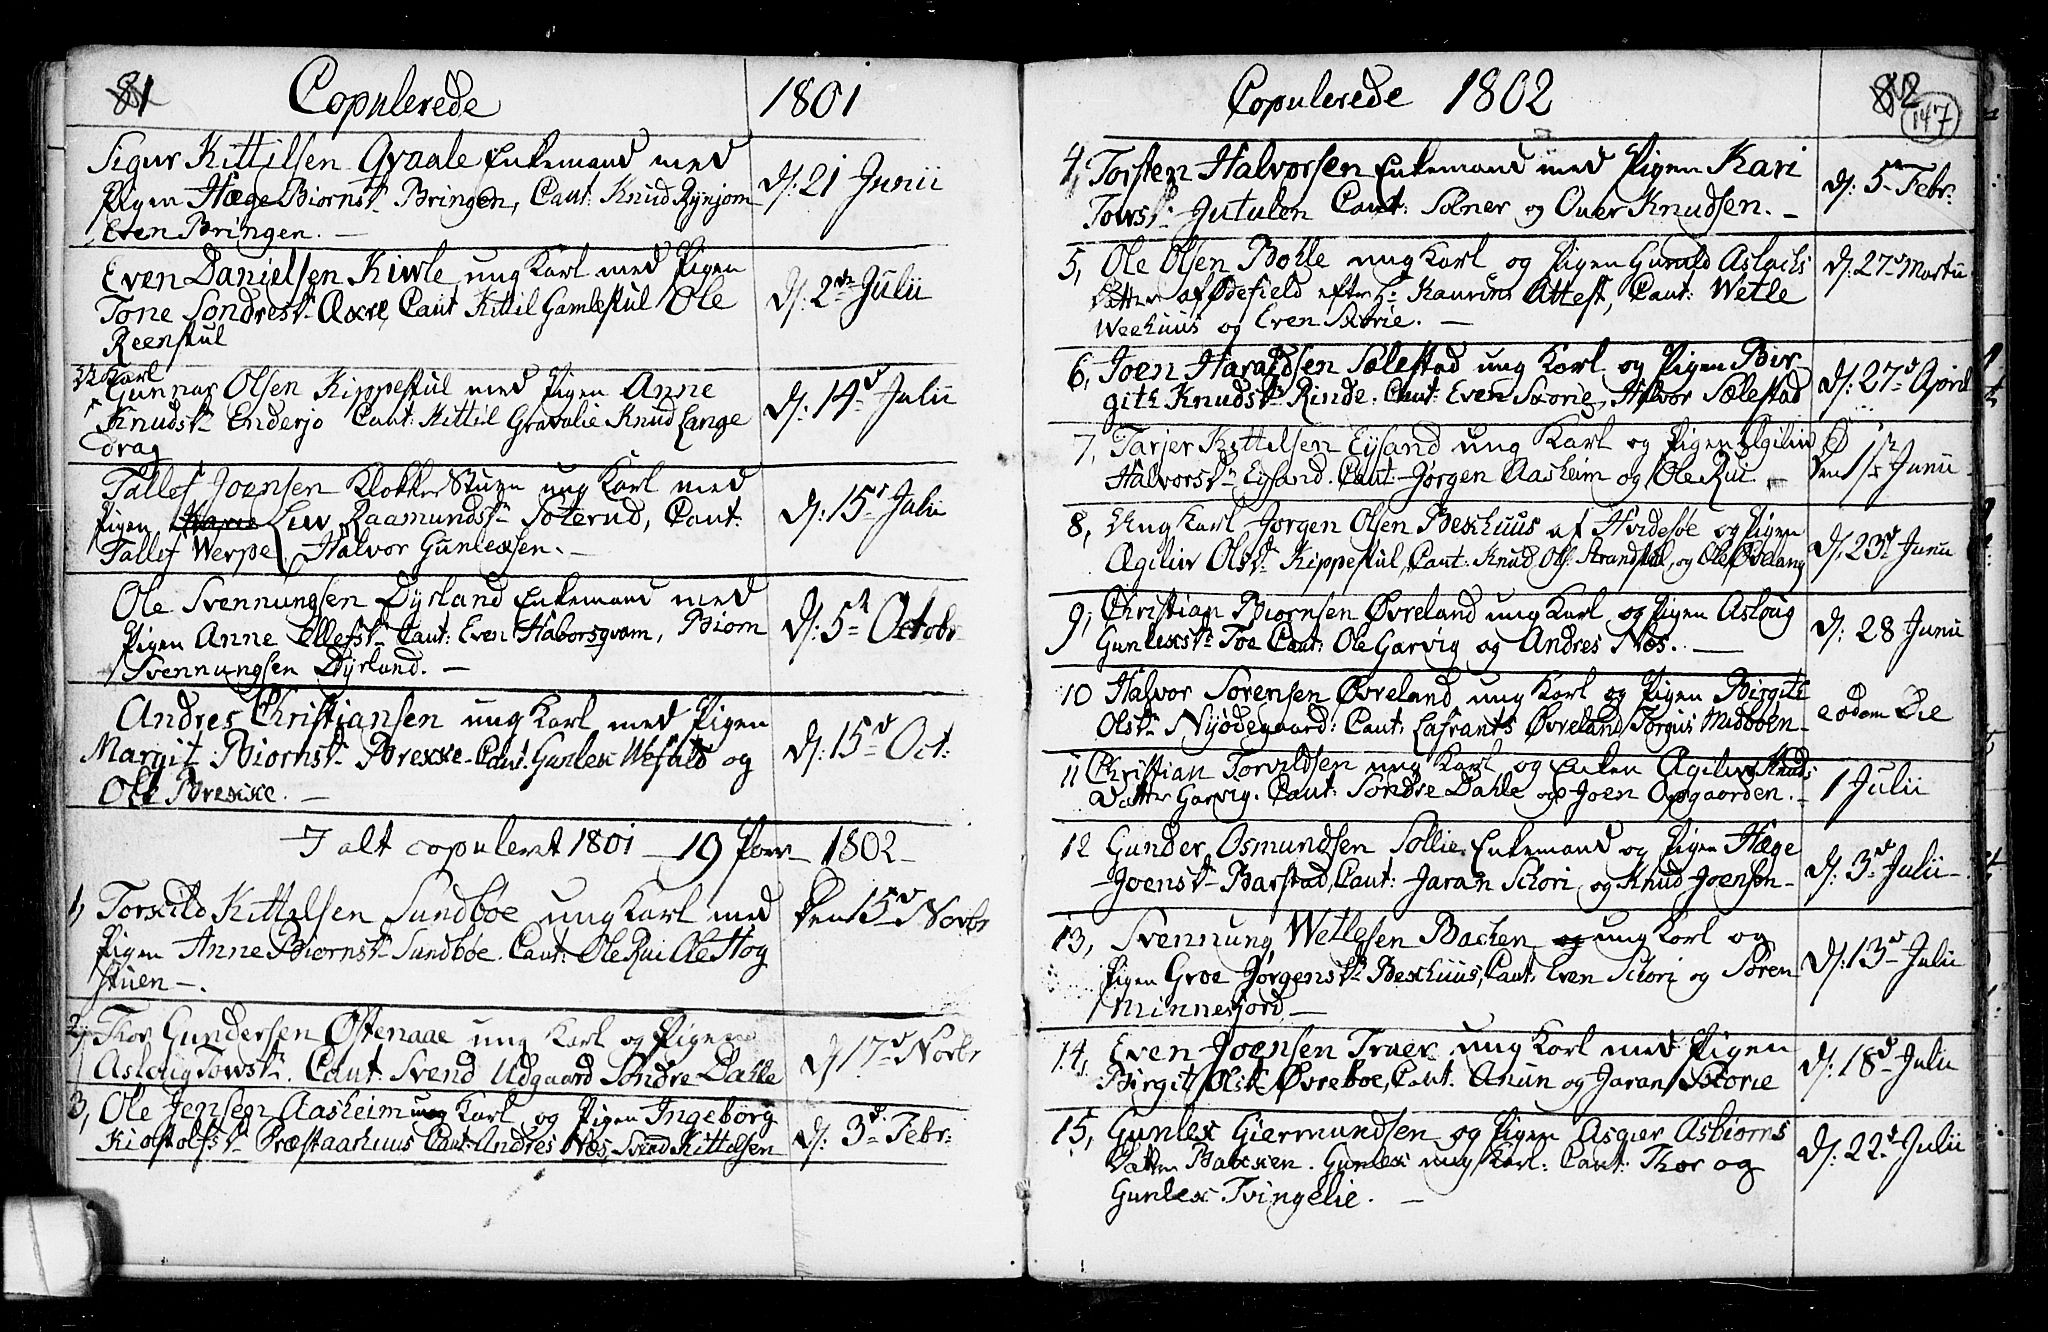 81 Copulerede 1801
Sigur Kittilsen Qvaale Enkemand med
Pigen Hæge Biornsdr Bringen, Caut: Knud Rynjom
Even Bringen. —
d: 21 Junii
Even Danielsen Kivle ung Karl med Pigen
Tone Sondresdr Axre, Caut Kittil Gamlestul Ole
Reenstul
d: 2de Julii
Karl
Gunnar Olsen Kippestul med Pigen Anne
Knudsdr Enderjo Caut: Kittil Gravalie Knud Lange
drag
d: 14d Julii
Tallef Joensen Klokker Stuen ung Karl med
Pigen Liv Raamundsdr Soterud, Caut:
Tallef Werpe, Halvor Gunlexsen. —
d: 15d Julii
Ole Svennungsen Dyrland Enkemand med
Pigen Anne Ellefsdr Caut: Even Haborsqvam, Biorn
Svennungsen Dyrland. —
d: 5t Octobr
Andres Christiansen ung Karl med Pigen
Margit Biornsdr Brekke. Caut. Gunlex Wefald og
Ole Brekke. —
d: 15d Oct:
I alt copuleret 1801 — 19 Parr — 1802 —
1, Torkild Kittelsen Sundboe ung Karl med
Pigen Anne Biornsdr Sundboe. Caut: Ole Rui Ole Hog
stuen —.
den 15d Novbr
2, Thor Gundersen Østenaae ung Karl og Pigen
Asloug Towsdr. Caut: Svend Udgaard Sondre Dahle
d 17d Novbr
3, Ole Jensen Aasheim ung Karl og Pigen Ingeborg
Kiostolfsdr Præstaarhuus Caut: Andres Næs, Svend Kittelsen
d: 3d Febr:
Copulerede 1802 82
147
4, Torsten Halvorsen Enkemand med Pigen Kari
Towsdr Jutulen Caut: Solner og Over Knudsen. —
d: 5 Febr:
5, Ole Olsen Bolle ung Karl og Pigen Gunild Aslachs
Datter af Ødefield efter Hr Kaurins Attest, Caut: Wetle
Weehuus og Even Skorie. —
d: 27 Martii
6, Joen Haraldsen Sælestad ung Karl og Pigen Bir
gite Knudsdr Rinde. Caut: Even Skorie, Halvor Sælestad
d: 27d April
7, Tarjer Kittelsen Eysand ung Karl og Pigen Egiliv
Halvorsdr Eysand. Caut: Jørgen Aasheim og Ole Rui —
den 1ste Junii
8, Ung Karl Jorgen Olsen Bekhuus af Hvidesøe og Pigen
Ægiliv Olsdr Kippestul, Caut: Knud Ols: Strandstul, og Ole Øvelang
d: 23d Junii
9, Christian Biornsen Øvreland ung Karl og Pigen Asloug
Gunlexsdr Toe Caut: Ole Garvig og Andres Næs. —
d: 28 Junii
10 Halvor Sorensen Øvreland ung Karl og Pigen Birgite
Olsdr Nyødegaard: Caut: Lafrants Øvreland Torgius Midboen —
eodem Die
11 Christian Torvildsen ung Karl og Enken Agiliv Knuds
Datter Garvig. Caut: Sondre Dahle og Joen Opgaarden. —
1 Julii
12 Gunder Osmundsen Sollie Enkemand og Pigen Hæge
Joensdr Barstad, Caut: Jaran Skori og Knud Joensen —
d: 3d Julii —
13, Svennung Wetlesen Backen ung Karl og
Pigen Groe Jørgensdr Bekhuus, Caut: Even Skori og Søren
Minnesjord —
d: 13 Julii
14, Even Joensen Traer ung Karl med Pigen
Birgit Olsdr Øvreboe, Caut: Anun og Jaran Skorie
d: 18d Julii
15, Gunlex Giermundsen og Pigen Asgier Asbiorns
Datter Bakken. Gunlex ung Karl: Caut: Thor og
Gunlex Tvingelie. —
d: 22d Julii